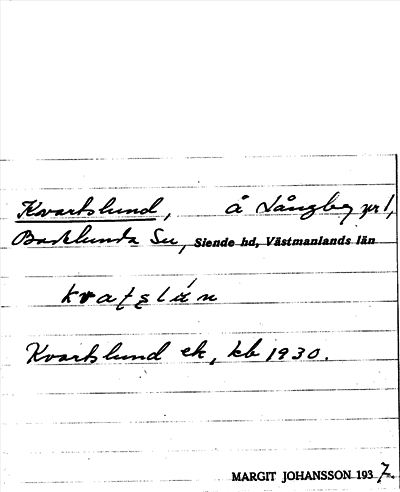 Kvartslund, å Långby nr 1,
Barklunda Sn, Siende hd, Västmanlands län
Kvartslund ek, kb 1930.
MARGIT JOHANSSON 1937.